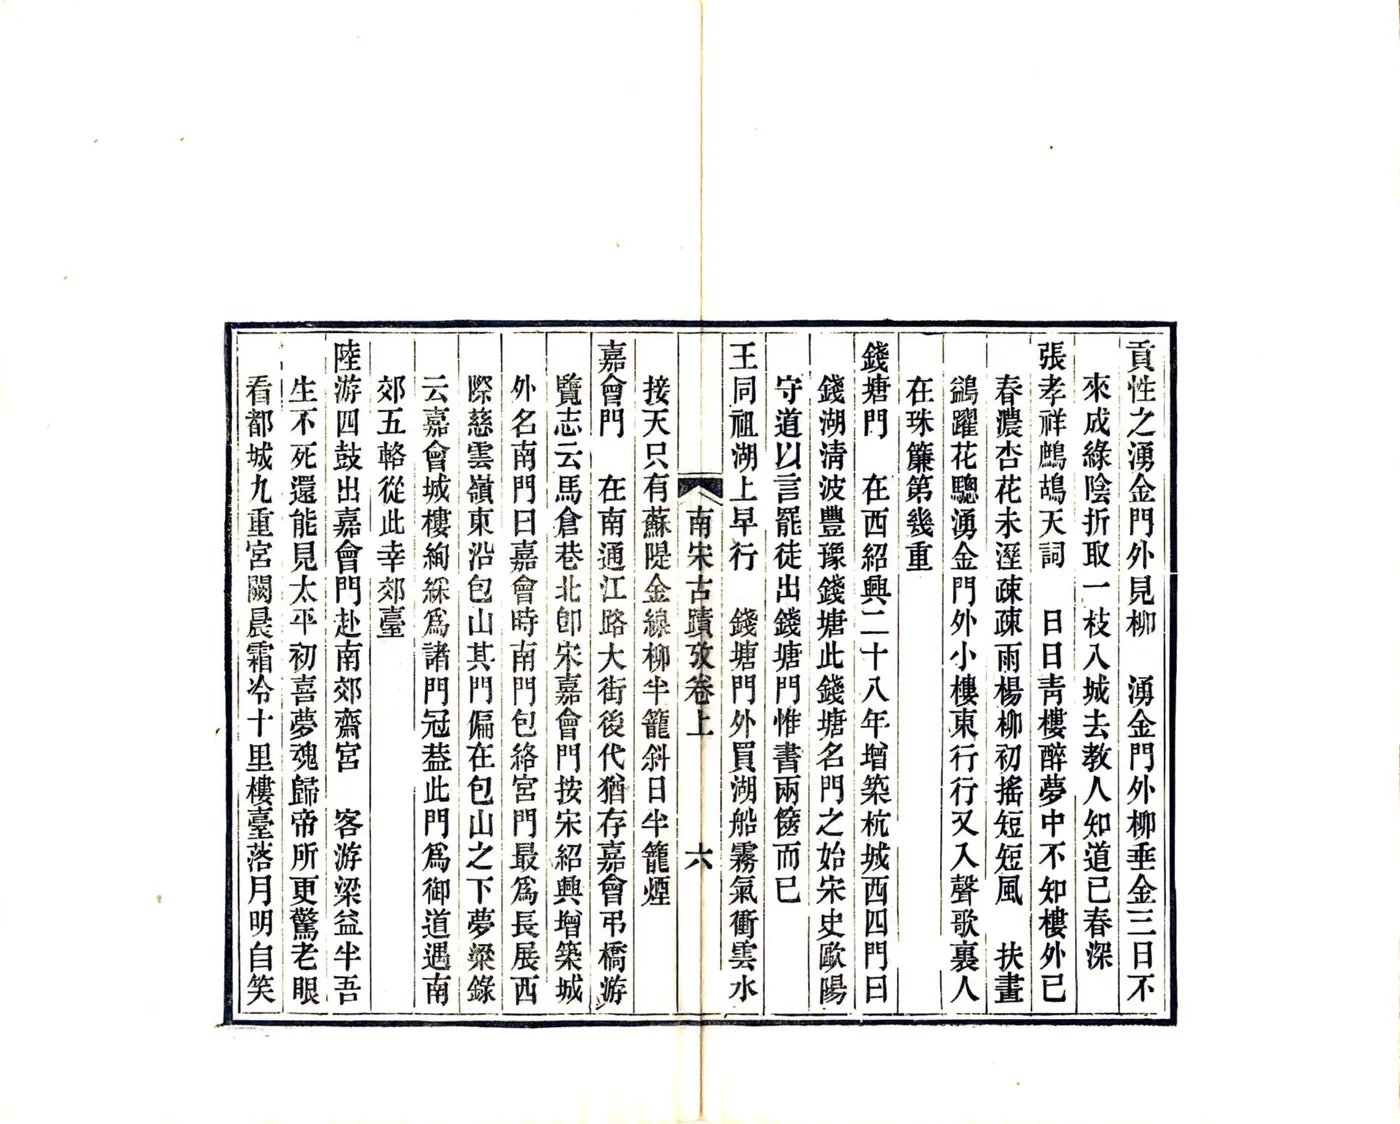 貢性之湧金門外見柳　湧金門外柳垂金三日不
來成綠陰折取一枝入城去教人知道已春深
張孝祥鷓鴣天詞　日日青樓醉夢中不知樓外已
春濃杏花未溼疎疎雨楊柳初搖短短風　扶畫
鷁躍花驄湧金門外小樓東行行又入聲歌裏人
在珠簾第幾重
錢塘門　在西紹興二十八年增築杭城西四門曰
錢湖淸波豐豫錢塘此錢塘名門之始宋史歐陽
守道以言罷徒出錢塘門惟書兩篋而已
王同祖湖上早行　錢塘門外買湖船霧氣衝雲水
南宋古蹟攷卷上　六
接天只有蘇隄金線柳半籠斜日半籠煙
嘉會門　在南通江路大街後代猶存嘉會弔橋游
覽志云馬倉巷北卽宋嘉會門按宋紹興增築城
外名南門曰嘉會時南門包絡宮門最爲長展西
際慈雲嶺東沿包山其門偏在包山之下夢粱錄
云嘉會城樓絢綵爲諸門冠葢此門爲御道遇南
郊五輅從此幸郊臺
陸游四鼓出嘉會門赴南郊齋宮　客游梁益半吾
生不死還能見太平初喜夢魂歸帝所更驚老眼
看都城九重宮闕晨霜冷十里樓臺落月明自笑